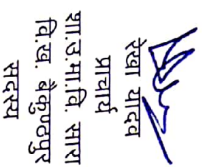 रेखा यादव
प्राचार्य
शा.उ.मा.वि. सारा
वि.ख. बैकुण्ठपुर
सदस्य